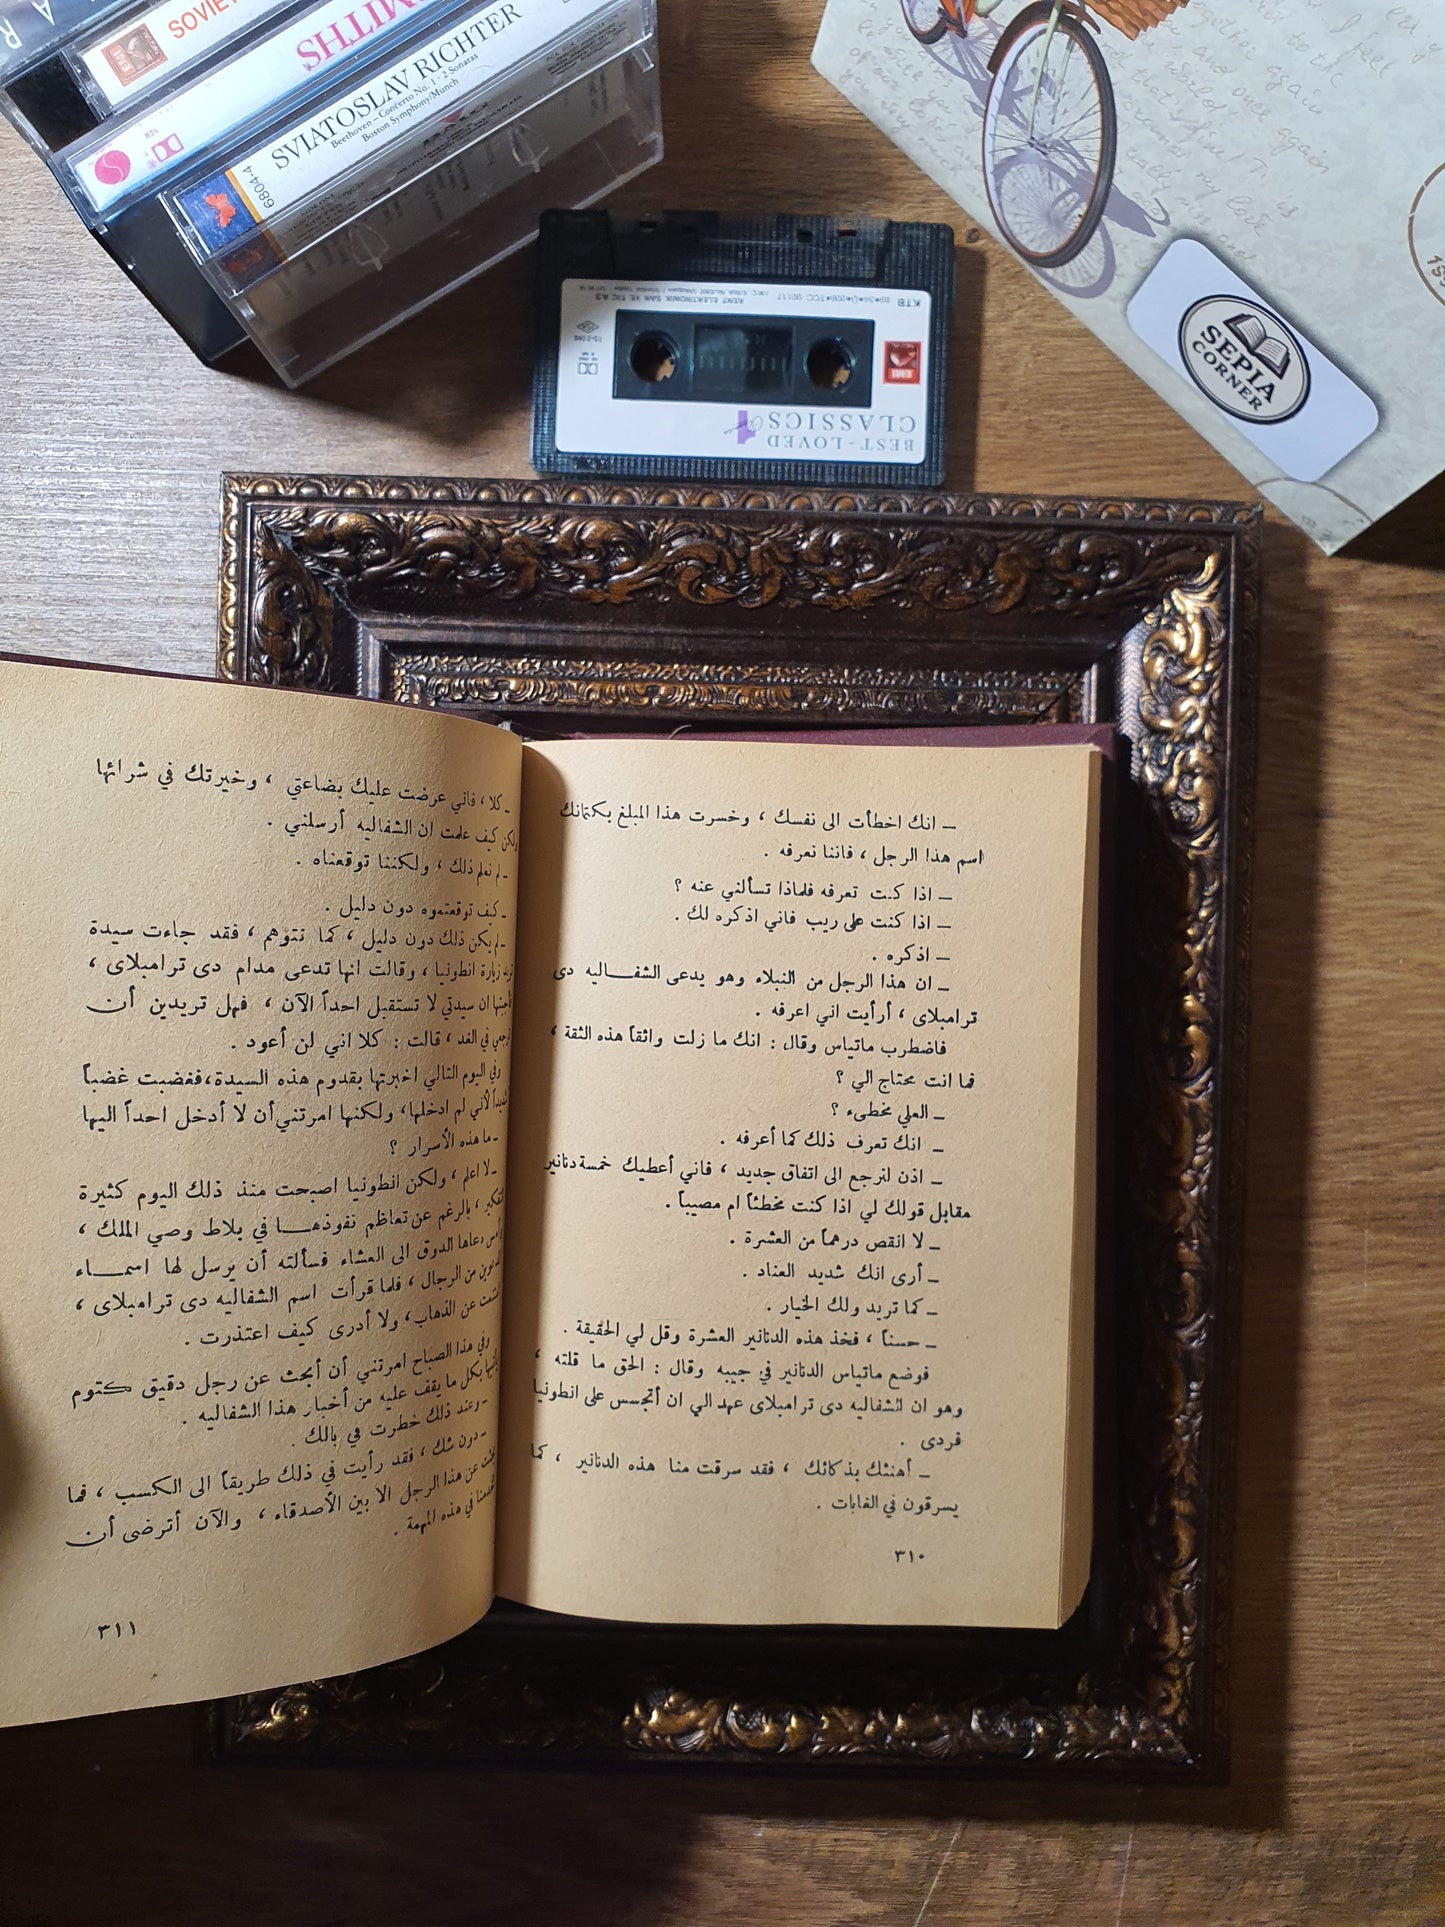 SOVIET
SMITHS
SVIATOSLAV RICHTER
Beethoven – Concerto No. 1 · 2 Sonatas
Boston Symphony/Munch
6804-4
EMI
KENT ELEKTRONIK SAN. VE TİC. A.Ş.
KTB
EMI
BEST-LOVED
CLASSICS 4
SEPIA
CORNER
ـ انك اخطأت الى نفسك ، وخسرت هذا المبلغ بكتمانك
اسم هذا الرجل ، فاننا نعرفه .
ـ اذا كنت تعرفه فلماذا تسألني عنه ؟
ـ اذا كنت على ريب فاني اذكره لك .
ـ اذكره .
ـ ان هذا الرجل من النبلاء وهو يدعى الشفـاليه دى
ترامبلاى ، أرأيت اني اعرفه .
فاضطرب ماتياس وقال : انك ما زلت واثقاً هذه الثقة ،
فما انت محتاج الي ؟
ـ العلي مخطىء ؟
ـ انك تعرف ذلك كما أعرفه .
ـ اذن لنرجع الى اتفاق جديد ، فاني أعطيك خمسة دنانير
مقابل قولك لي اذا كنت مخطئاً ام مصيباً .
ـ لا انقص درهماً من العشرة .
ـ أرى انك شديد العناد .
ـ كما تريد ولك الخيار .
ـ حسناً ، فخذ هذه الدنانير العشرة وقل لي الحقيقة .
فوضع ماتياس الدنانير في جيبه وقال : الحق ما قلته ،
وهو ان الشفاليه دى ترامبلاى عهد الي ان أتجسس على انطونيا
فردى .
ـ أهنئك بذكائك ، فقد سرقت منا هذه الدنانير ، كما
يسرقون في الغابات .
٣١٠
ـ كلا ، فاني عرضت عليك بضاعتي ، وخيرتك في شرائها
ولكن كيف علمت ان الشفاليه أرسلني .
ـ لم نعلم ذلك ، ولكننا توقعناه .
ـ كيف توقعتموه دون دليل .
ـ لم يكن ذلك دون دليل ، كما تتوهم ، فقد جاءت سيدة
تريد زيارة انطونيا ، وقالت انها تدعى مدام دى ترامبلاى ،
فأجبتها ان سيدتي لا تستقبل احداً الآن ، فهل تريدين أن
ترجعي في الغد ، قالت : كلا اني لن أعود .
وفي اليوم التالي اخبرتها بقدوم هذه السيدة ، فغضبت غضباً
شديداً لأني لم ادخلها ، ولكنها امرتني أن لا أدخل احداً اليها
ـ ما هذه الأسرار ؟
ـ لا اعلم ، ولكن انطونيا اصبحت منذ ذلك اليوم كثيرة
التفكير ، بالرغم عن تعاظم نفوذهـا في بلاط وصي الملك ،
دعاها الدوق الى العشاء فسألته أن يرسل لها اسمـاء
المدعوين من الرجال ، فلما قرأت اسم الشفاليه دى ترامبلاى ،
امتنعت عن الذهاب ، ولا أدرى كيف اعتذرت .
وفي هذا الصباح امرتني أن أبحث عن رجل دقيق كتوم
بكل ما يقف عليه من أخبار هذا الشفاليه .
ـ وعند ذلك خطرت في بالك .
ـ دون شك ، فقد رأيت في ذلك طريقاً الى الكسب ، فما
عن هذا الرجل الا بين الأصدقاء ، والآن أترضى أن
في هذه المهمة .
٣١١